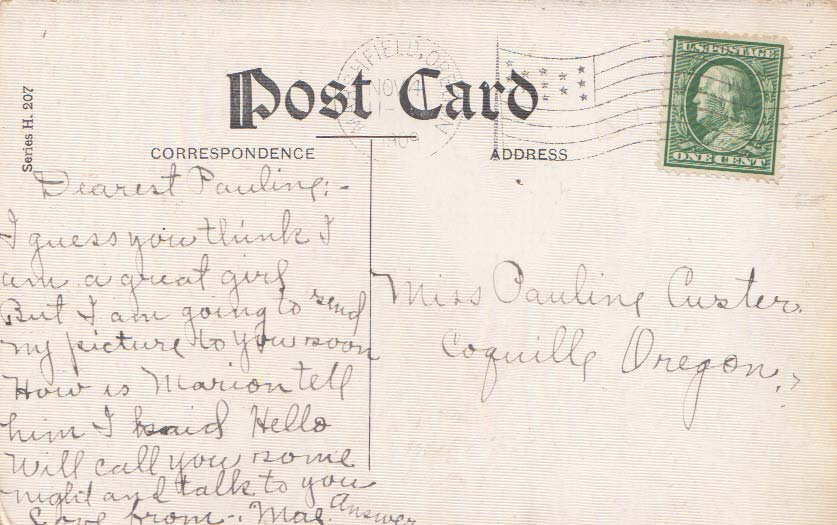 U.S. POSTAGE
ONE CENT
Series H. 207
Post Card
CORRESPONDENCE
ADDRESS
NOV
1909
Dearest Pauline:-
I guess you think I
am a great girl
But I am going to send
my picture to you soon
How is Marion tell
him I said Hello
Will call you some
night and talk to you
Love from -. Mae. Answer
Miss Pauline Custer.
Coquille Oregon.